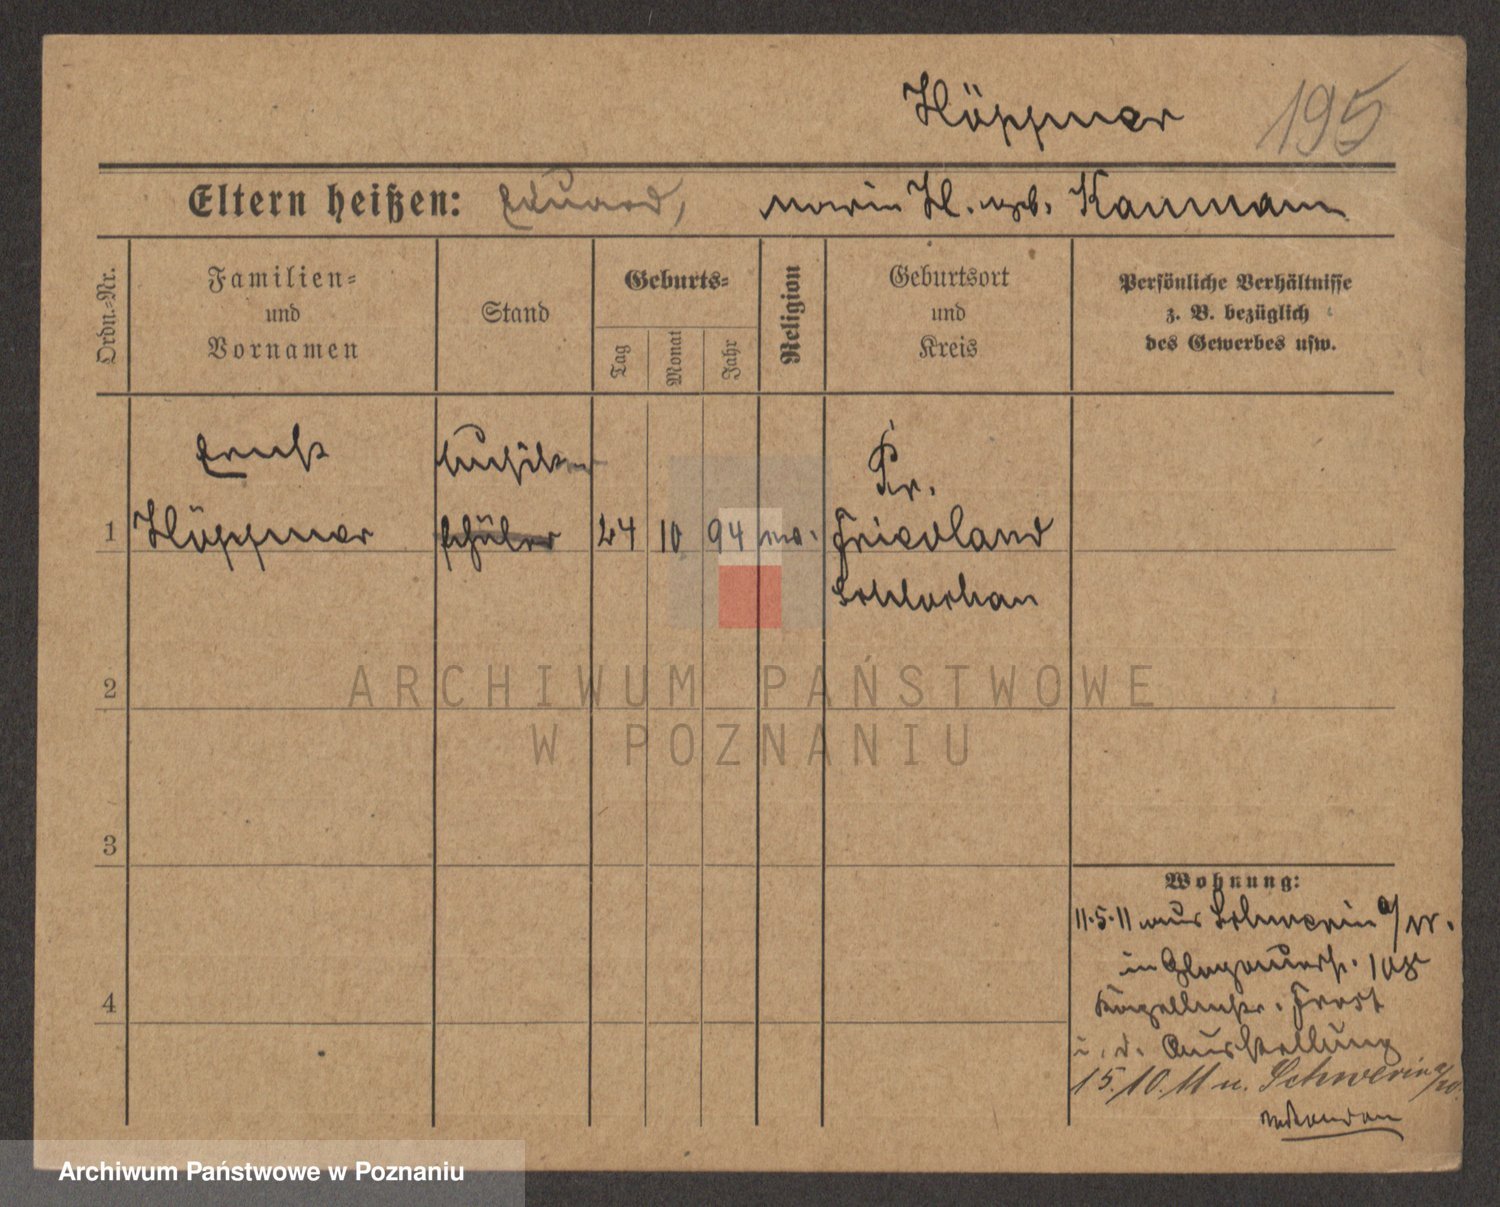 Höppner 195
Eltern heißen: Eduard, Marie H. geb. Kaumann
Ordn.=Nr.
Familien=
und
Vornamen
Stand
Geburts=
Tag
Monat
Jahr
Religion
Geburtsort
und
Kreis
Persönliche Verhältnisse
z. B. bezüglich
des Gewerbes usw.
Ernst
Höppner
Musik
schüler
1
24 10 94
Pr.
Friedland
Schlochau
2
3
4
Wohnung:
11.5.11 aus Schwerin a/W.
in Glogauerstr.
Kapellmstr. Frost
i. d. Ausstellung
15.10.11 n. Schwerin a/W.
ARCHIWUM PAŃSTWOWE
W POZNANIU
Archiwum Państwowe w Poznaniu